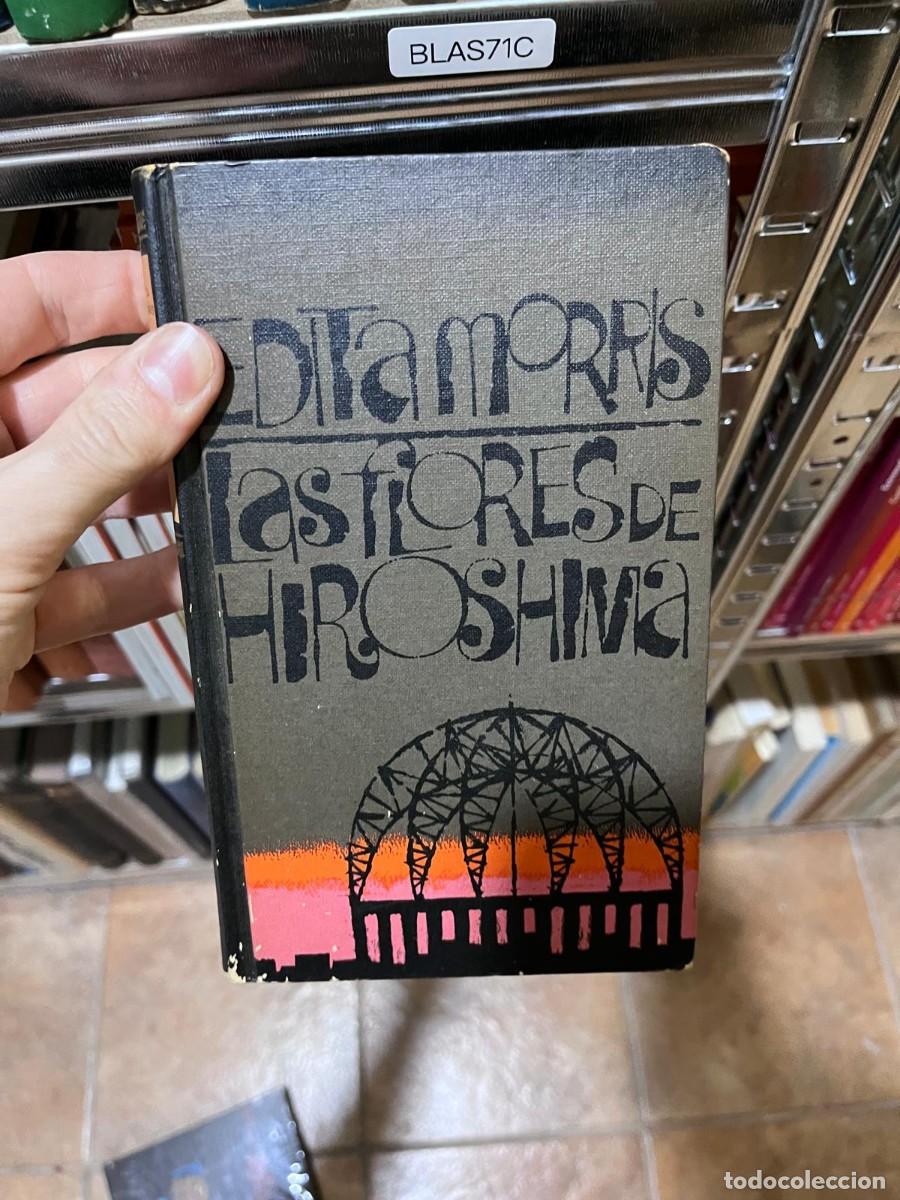 BLAS71C
EDITA MORRIS
LAS FLORES DE
HIROSHIMA
todocoleccion